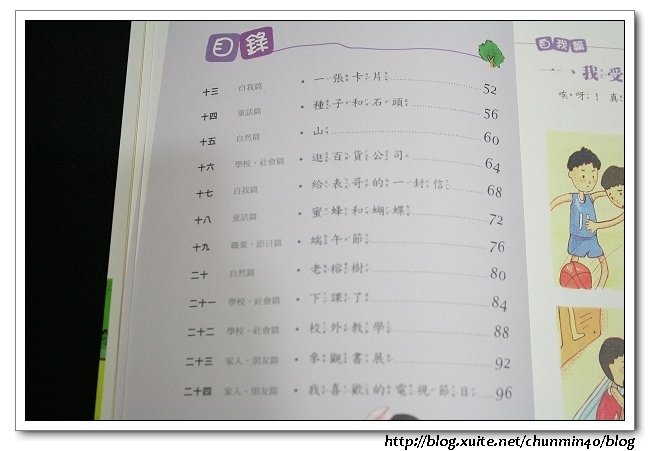 目錄
十三 自我篇 • 一張卡片 52
十四 童話篇 • 種子和石頭 56
十五 自然篇 • 山 60
十六 學校、社會篇 • 逛百貨公司 64
十七 自我篇 • 給表哥的一封信 68
十八 童話篇 • 蜜蜂和蝴蝶 72
十九 職業、節日篇 • 端午節 76
二十 自然篇 • 老榕樹 80
二十一 學校、社會篇 • 下課了 84
二十二 學校、社會篇 • 校外教學 88
二十三 家人、朋友篇 • 參觀書展 92
二十四 家人、朋友篇 • 我喜歡的電視節目 96
自我篇
一、我受
唉呀！真
http://blog.xuite.net/chunmin40/blog